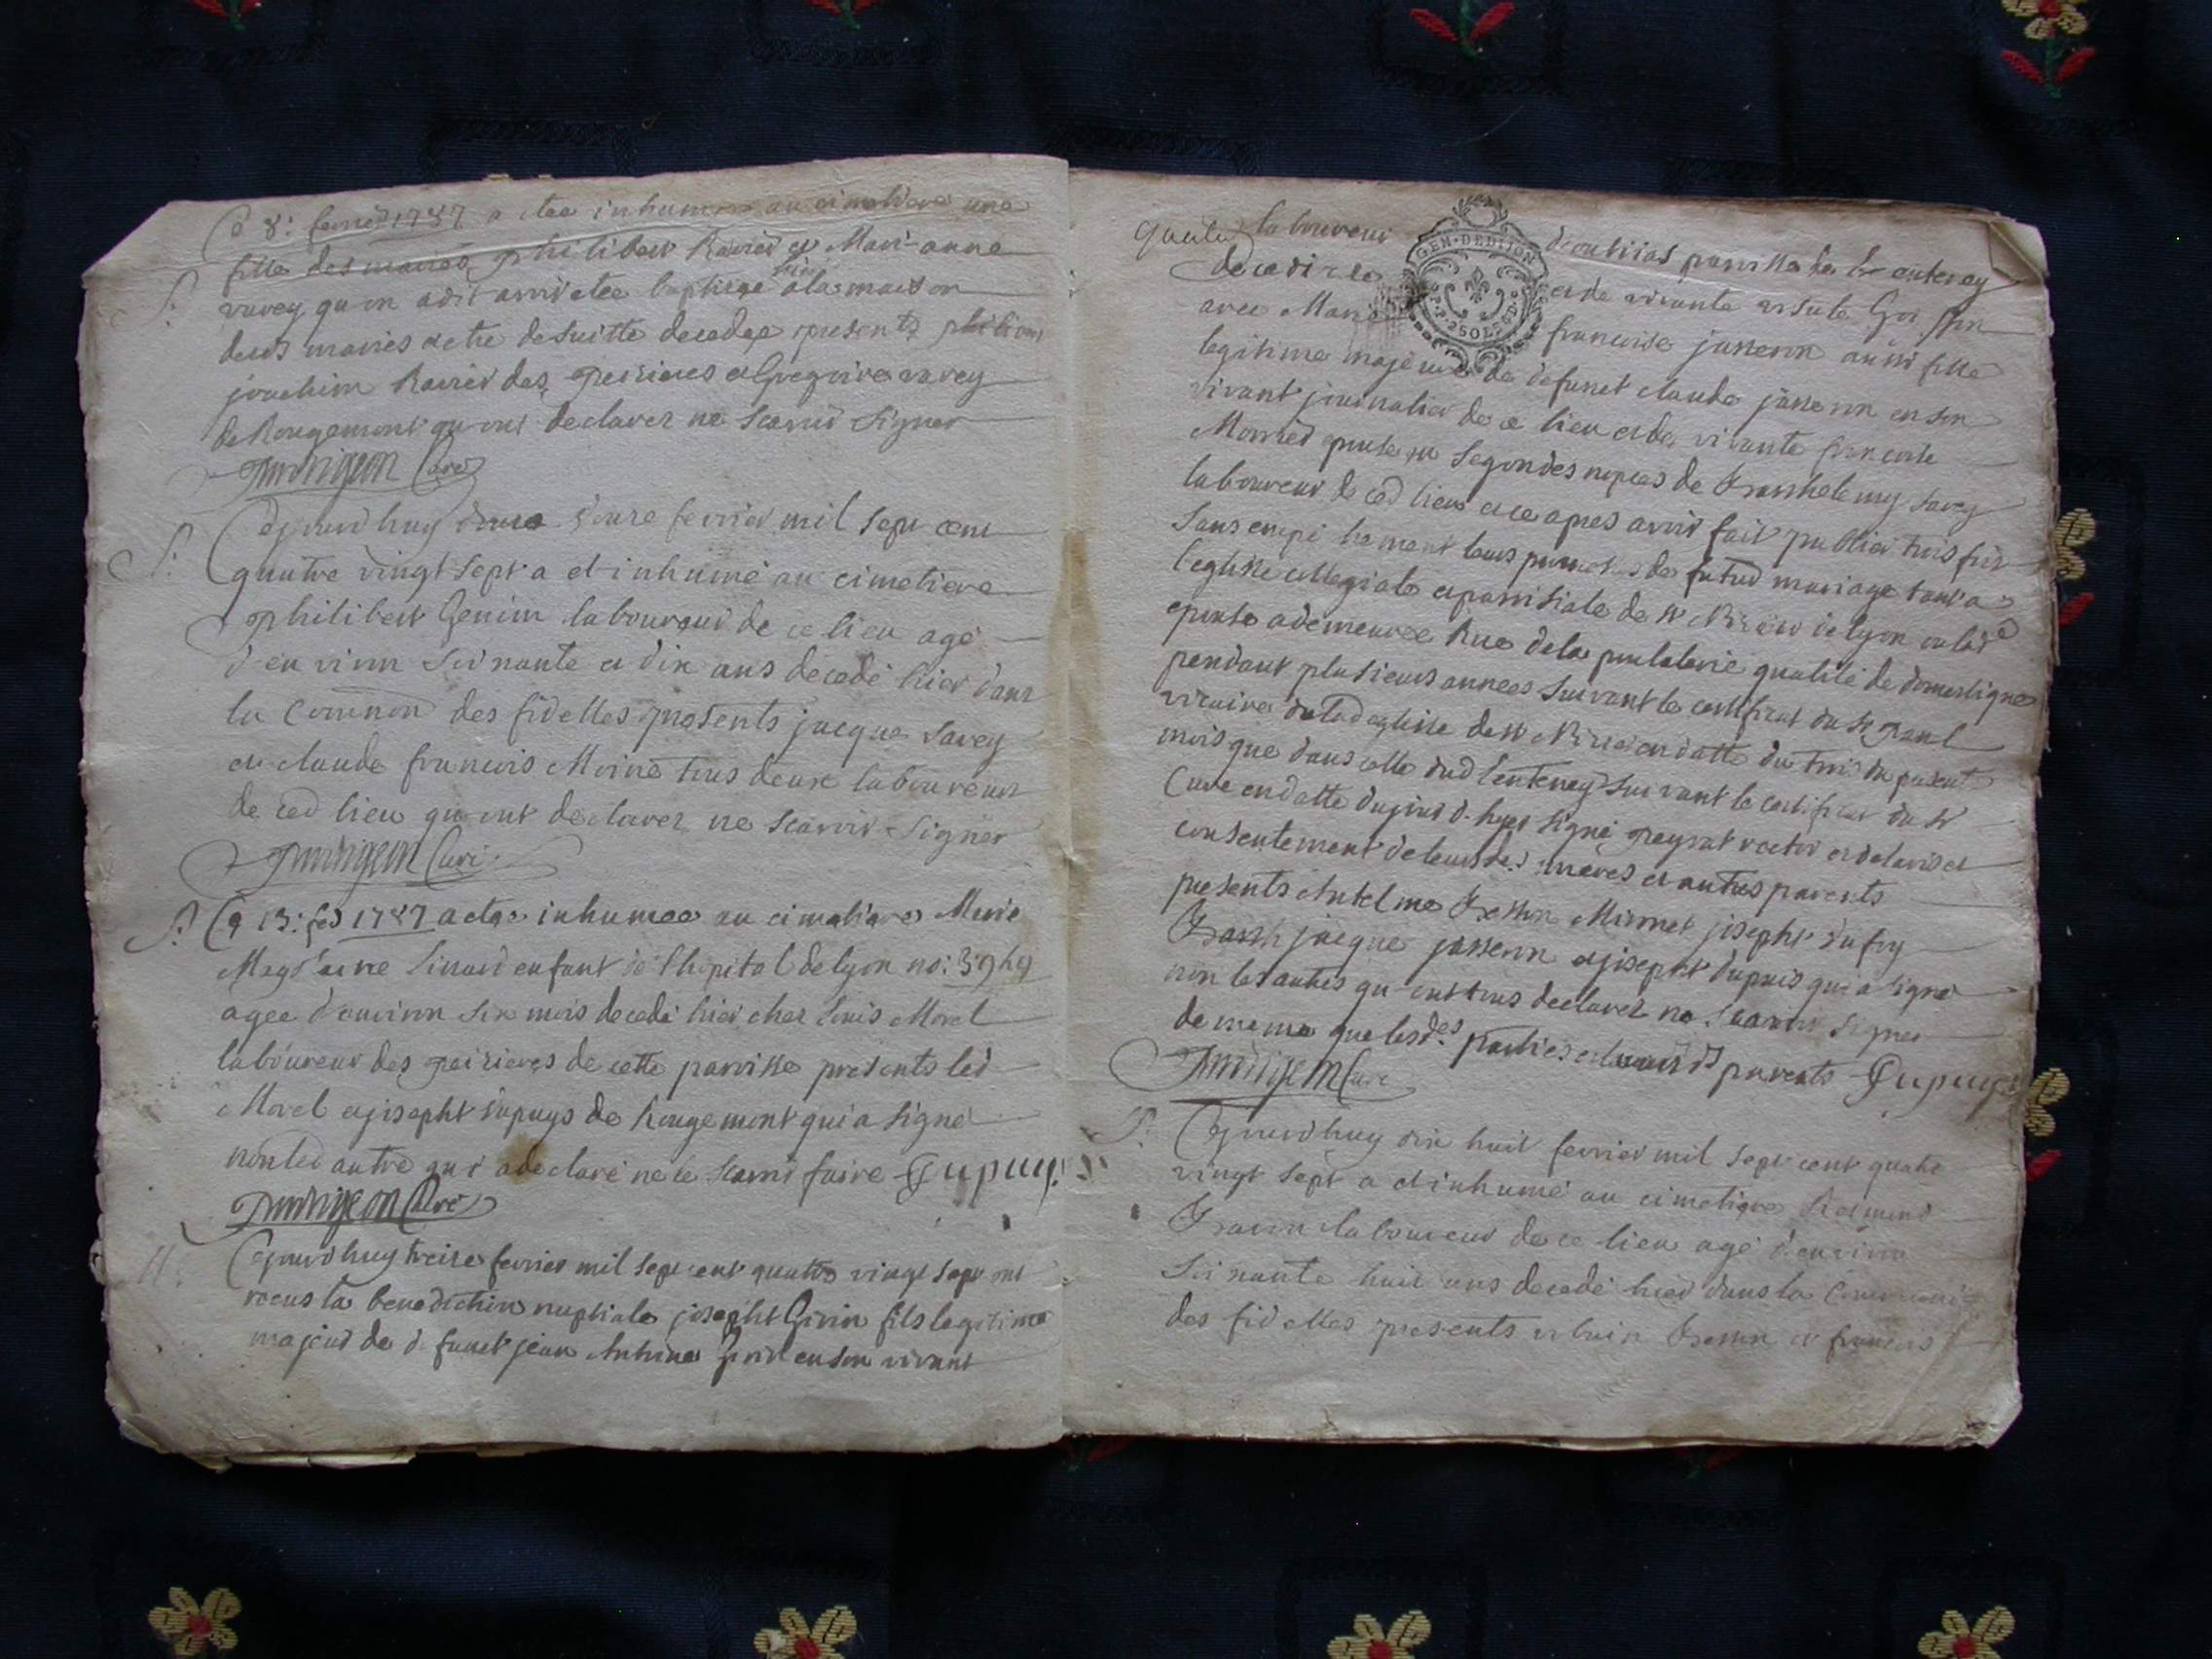 Ce 8: fevrier 1787 a etee inhumee au cimetiere une
fille des mariés philibert Ravier et Mari anne
varey qu'on a dit avoir etee baptisee a la maison
deux mariés et de suitte decedee presents philibert
joachim Ravier des peirieres et Gregoire varey
de Rougemont qu'ont declarez ne scavoir signer
Curé
Cejourd'huy douze fevrier mil sept cent
quatre vingt sept a et inhumé au cimetiere
philibert Genin laboureur de ce lieu agé
d'environ soixante et dix ans decedé hier dans
la Common des fidelles presents jacque Savey
et claude francois Moine tous deux laboureurs
de ced lieu qu'ont declarez ne scavoir signer
Curé
Ce 13: fer 1787 a etee inhumee au cimetiere Marie
enfant de l'hopital de lyon no: 3969
agee d'environ six mois decedé hier chez louis Morel
laboureur des peirieres de cette parroisse presents led
Morel et joseph dupuys de Rougemont qui a signé
non led autre qui a declaré ne le scavoir faire Dupuy
Curé
Cejourd'huy treize fevrier mil sept cent quatre vingt sept ont
receus la benediction nuptiale joseph Goiffin fils legitime
majeur de defunct jean Antoine en son vivant
laboureur parroisse de lentenay
GEN·DE DIJON
P.P. 2 SOLS
decedé et de vivante ursule
avec Marie francoise josseron aussi fille
legitime majeure de defunct claude josseron en son
vivant journalier de ce lieu et de vivante francoise
Monnet epouse en segondes nopces de Barthelemy Savey
laboureur de ced lieu et ce apres avoir fait publier trois fois
sans empechement leurs promesses de futur mariage tant a
l'eglise collegiale et parroisiale de st Nizier de lyon ou lade
epouse a demeuree Rue de la poulalerie qualité de domestique
pendant plusieurs annees suivant le certificat du sr paul
vicaire de lad eglise de st Nizier en datte du trois du present
mois que dans celle dud lentenay suivant le certificat du sr
Curé en datte du jour d'hyer signé et de l'avis et
consentement de leurs des meres et autres parents
presents Antelme Monnet joseph dufoy
jacque josseron et joseph dupuis qui a signé
non les autres qu'ont tous declarez ne scavoir signer
de meme que les des parties et leurs ds parents Dupuy
Curé
Cejourd'huy dix huit fevrier mil sept cent quatre
vingt sept a et inhumé au cimetiere Reimond
laboureur de ce lieu agé d'environ
soixante huit ans decedé hier dans la Communion
des fidelles presents et francois